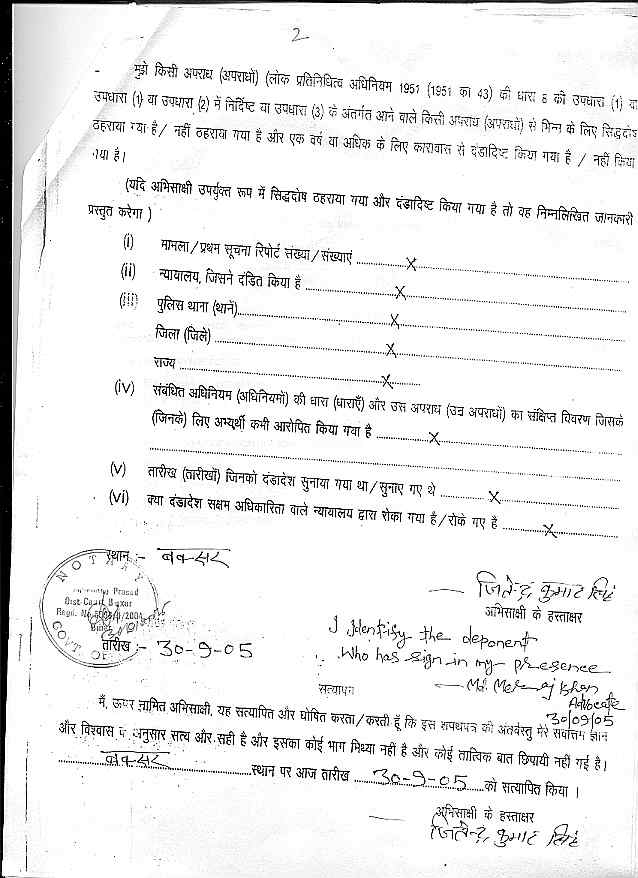 2
- मुझे किसी अपराध (अपराधों) (लोक प्रतिनिधित्व अधिनियम 1951 (1951 का 43) की धारा 8 की उपधारा (1) या
उपधारा (1) या उपधारा (2) में निर्दिष्ट या उपधारा (3) के अंतर्गत आने वाले किसी अपराध (अपराधों) से भिन्न के लिए सिद्धदोष
ठहराया गया है / नहीं ठहराया गया है और एक वर्ष या अधिक के लिए कारावास से दंडादिष्ट किया गया है / नहीं किया
गया है।
(यदि अभिसाक्षी उपर्युक्त रूप में सिद्धदोष ठहराया गया और दंडादिष्ट किया गया है तो वह निम्नलिखित जानकारी
प्रस्तुत करेगा )
(i) मामला / प्रथम सूचना रिपोर्ट संख्या / संख्याएं ..........X..........
(ii) न्यायालय, जिसने दंडित किया है ..........X..........
(iii) पुलिस थाना (थानें)..........X..........
जिला (जिले) ..........X..........
राज्य ..........X..........
(iv) संबंधित अधिनियम (अधिनियमों) की धारा (धाराएँ) और उस अपराध (उन अपराधों) का संक्षिप्त विवरण जिसके
(जिनके) लिए अभ्यर्थी कमी आरोपित किया गया है ..........X..........
(v) तारीख (तारीखों) जिनको दंडादेश सुनाया गया था / सुनाए गए थे ..........X..........
(vi) क्या दंडादेश सक्षम अधिकारिता वाले न्यायालय द्वारा रोका गया है / रोके गए है ..........X..........
स्थान :- बक्सर
NOTARY
Prasad
Dist. Court Buxar
Regd. No.
GOVT OF
जितेन्द्र कुमार सिंह
अभिसाक्षी के हस्ताक्षर
I Identify the deponent
Who has sign in my presence
तारीख :- 30-9-05
Md. Meraj Khan
Advocate
30/09/05
सत्यापन
मैं, ऊपर नामित अभिसाक्षी, यह सत्यापित और घोषित करता / करती हूँ कि इस शपथपत्र की अंतर्वस्तु मेरे सर्वोत्तम ज्ञान
और विश्वास के अनुसार सत्य और सही है और इसका कोई भाग मिथ्या नहीं है और कोई तात्विक बात छिपायी नहीं गई है।
बक्सर ..........स्थान पर आज तारीख ....30-9-05......को सत्यापित किया ।
अभिसाक्षी के हस्ताक्षर
जितेन्द्र कुमार सिंह